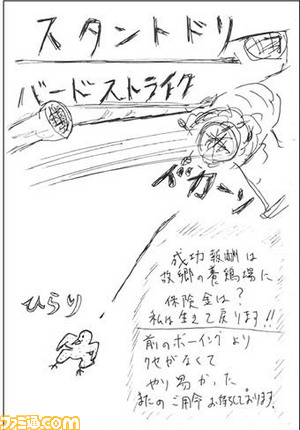 スタントドリ
バードストライク
ドカーン
成功報酬は
故郷の養鶏場に
保険金は？
私は生きて戻ります!!
ひらり
前のボーイングより
クセがなくて
やり易かった
またのご用命お待ちしております。
ファミ通.com